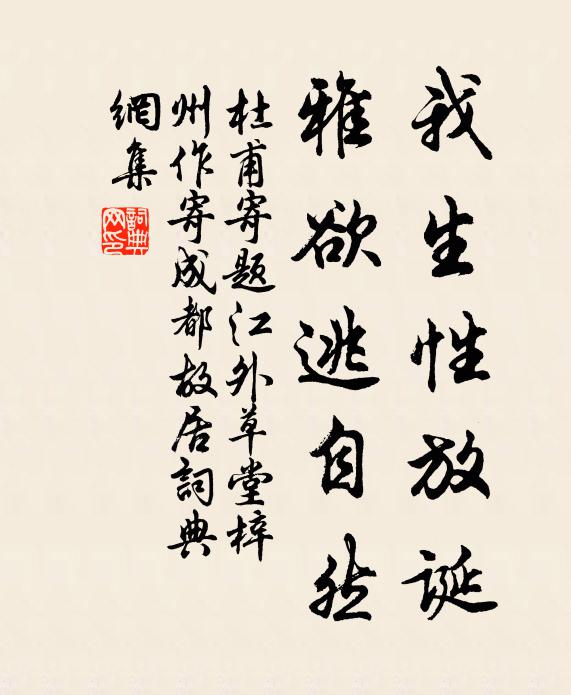 我生性放誕
雅欲逃自然
杜甫寄題江外草堂梓
州作寄成都故居詞典
網集
詞典
网印